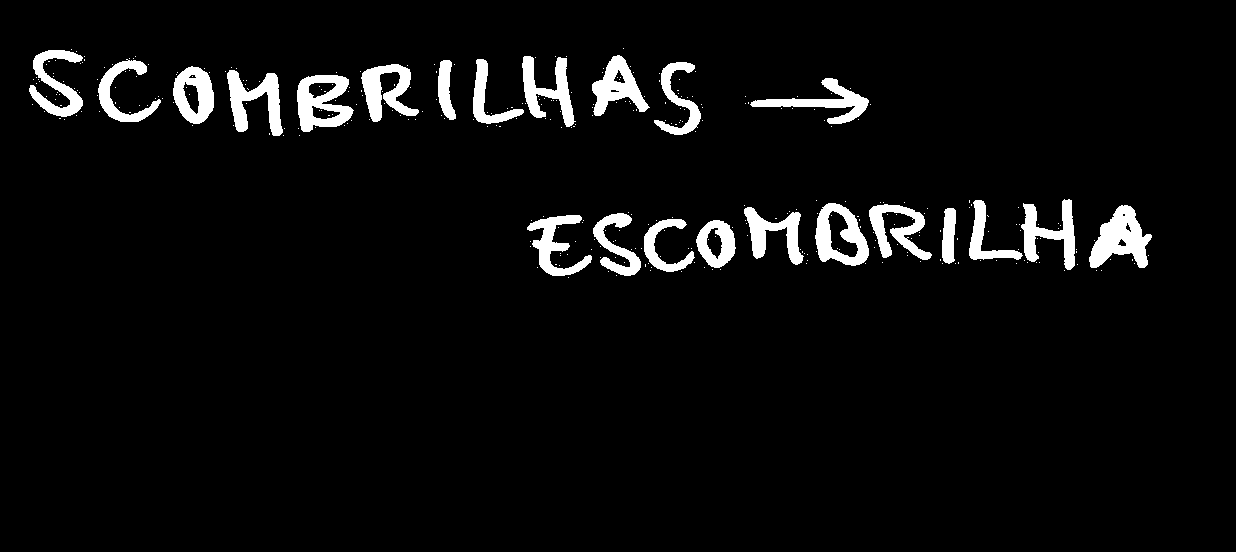 SCOMBRILHAS →
ESCOMBRILHA